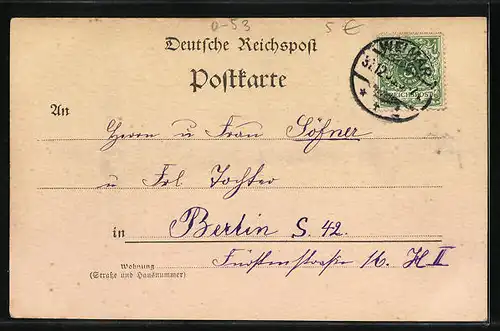 0-53
5 €
Deutsche Reichspost
Postkarte
WEIMAR
REICHSPOST
An
Herrn u Frau Söfner
u Frl. Tochter
in Berlin S. 42.
Wohnung
Fürstenstraße 16. H II
(Straße und Hausnummer)